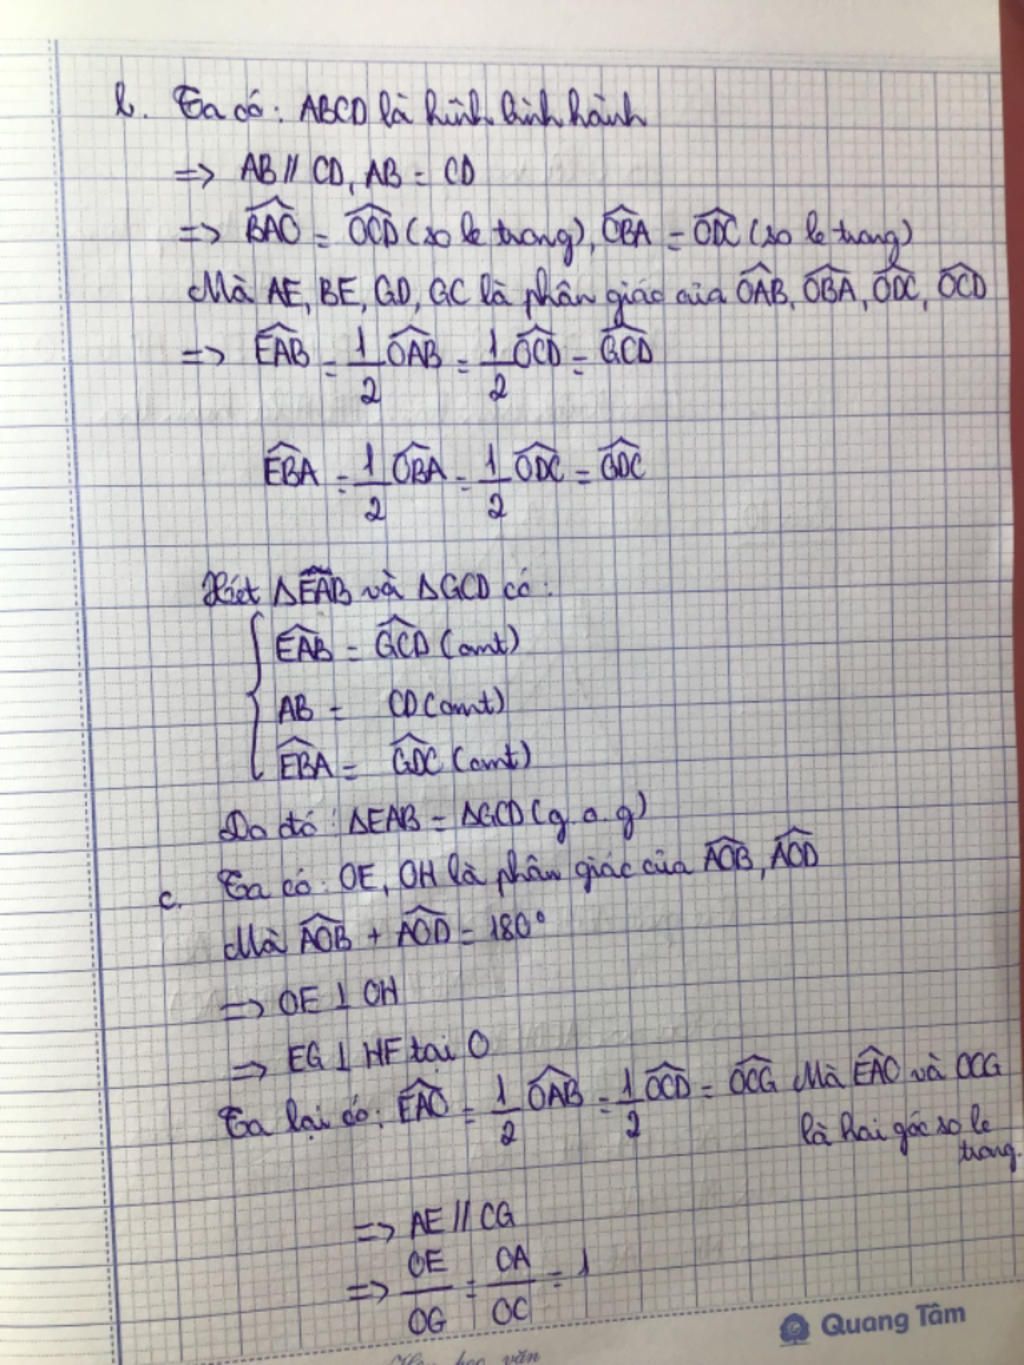 b. Ta có: ABCD là hình bình hành
=> AB // CD, AB = CD
=> \widehat{BAO} = \widehat{OCD} (so le trong), \widehat{OBA} = \widehat{ODC} (so le trong)
Mà AE, BE, GD, GC là phân giác của \widehat{OAB}, \widehat{OBA}, \widehat{ODC}, \widehat{OCD}
=> \widehat{EAB} = \frac{1}{2} \widehat{OAB} = \frac{1}{2} \widehat{OCD} = \widehat{GCD}
\widehat{EBA} = \frac{1}{2} \widehat{OBA} = \frac{1}{2} \widehat{ODC} = \widehat{GDC}
Xét ΔEAB và ΔGCD có:
\widehat{EAB} = \widehat{GCD} (cmt)
AB = CD (cmt)
\widehat{EBA} = \widehat{GDC} (cmt)
Do đó: ΔEAB = ΔGCD (g.c.g)
c. Ta có: OE, OH là phân giác của \widehat{AOB}, \widehat{AOD}
Mà \widehat{AOB} + \widehat{AOD} = 180°
=> OE ⊥ OH
=> EG ⊥ HF tại O
Ta lại có: \widehat{EAO} = \frac{1}{2} \widehat{OAB} = \frac{1}{2} \widehat{OCD} = \widehat{OCG} Mà \widehat{EAO} và OCG
là hai góc so le
trong.
=> AE // CG
=> \frac{OE}{OG} = \frac{OA}{OC} = 1
Quang Tâm
học văn